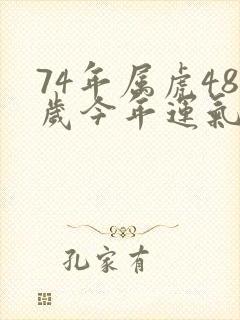 74年属虎48
歲今年運氣
孔家有